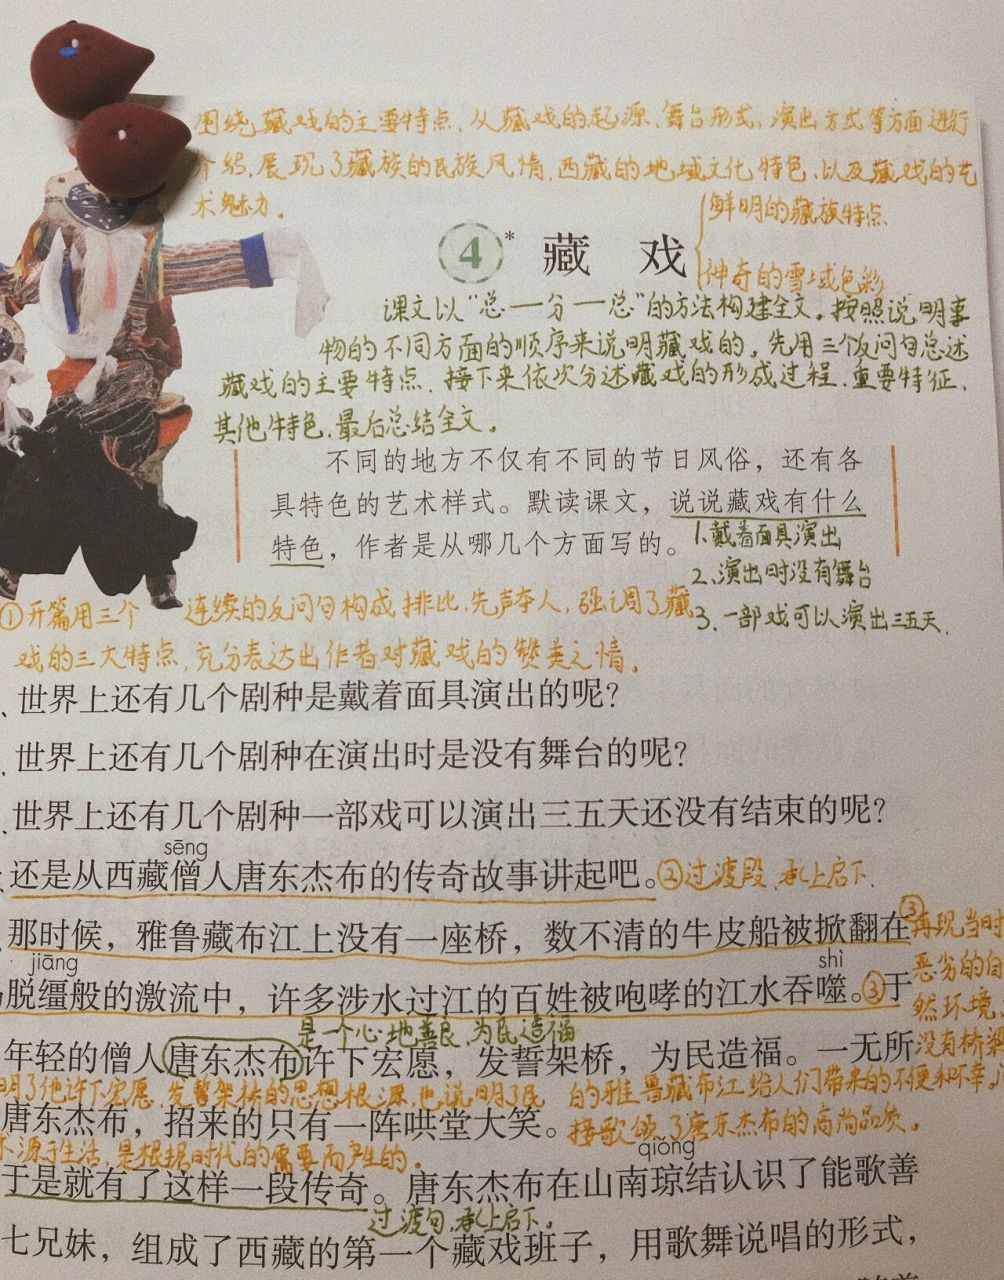 围绕藏戏的主要特点、从藏戏的起源、舞台形式、演出方式等方面进行
介绍,展现了藏族的民族风情,西藏的地域文化特色、以及藏戏的艺
术魅力。
鲜明的藏族特点
④* 藏 戏
神奇的雪域色彩
课文以“总一分一总”的方法构建全文。按照说明事
物的不同方面的顺序来说明藏戏的。先用三个反问句总述
藏戏的主要特点、接下来依次分述藏戏的形成过程、重要特征、
其他特色,最后总结全文。
不同的地方不仅有不同的节日风俗,还有各
具特色的艺术样式。默读课文,说说藏戏有什么
特色,作者是从哪几个方面写的。
1、戴着面具演出
2、演出时没有舞台
3、一部戏可以演出三五天.
①开篇用三个 连续的反问句构成排比,先声夺人,强调了藏
戏的三大特点,充分表达出作者对藏戏的赞美之情。
世界上还有几个剧种是戴着面具演出的呢?
世界上还有几个剧种在演出时是没有舞台的呢?
世界上还有几个剧种一部戏可以演出三五天还没有结束的呢?
sēng
还是从西藏僧人唐东杰布的传奇故事讲起吧。②过渡段,承上启下.
那时候,雅鲁藏布江上没有一座桥,数不清的牛皮船被掀翻在
③再现当时
恶劣的自
然环境,
没有桥梁
jiāng shì
脱缰般的激流中,许多涉水过江的百姓被咆哮的江水吞噬。③于
是一个心地善良,为民造福
年轻的僧人唐东杰布许下宏愿,发誓架桥,为民造福。一无所
明了他许下宏愿,发誓架桥的思想根源,也说明了民
的雅鲁藏布江给人们带来的不便和不幸。
唐东杰布,招来的只有一阵哄堂大笑。
接歌颂了唐东杰布的高尚品质。
源于生活,是根据时代的需要而产生的。
qióng
于是就有了这样一段传奇。唐东杰布在山南琼结认识了能歌善
过渡句,承上启下。
七兄妹,组成了西藏的第一个藏戏班子,用歌舞说唱的形式,